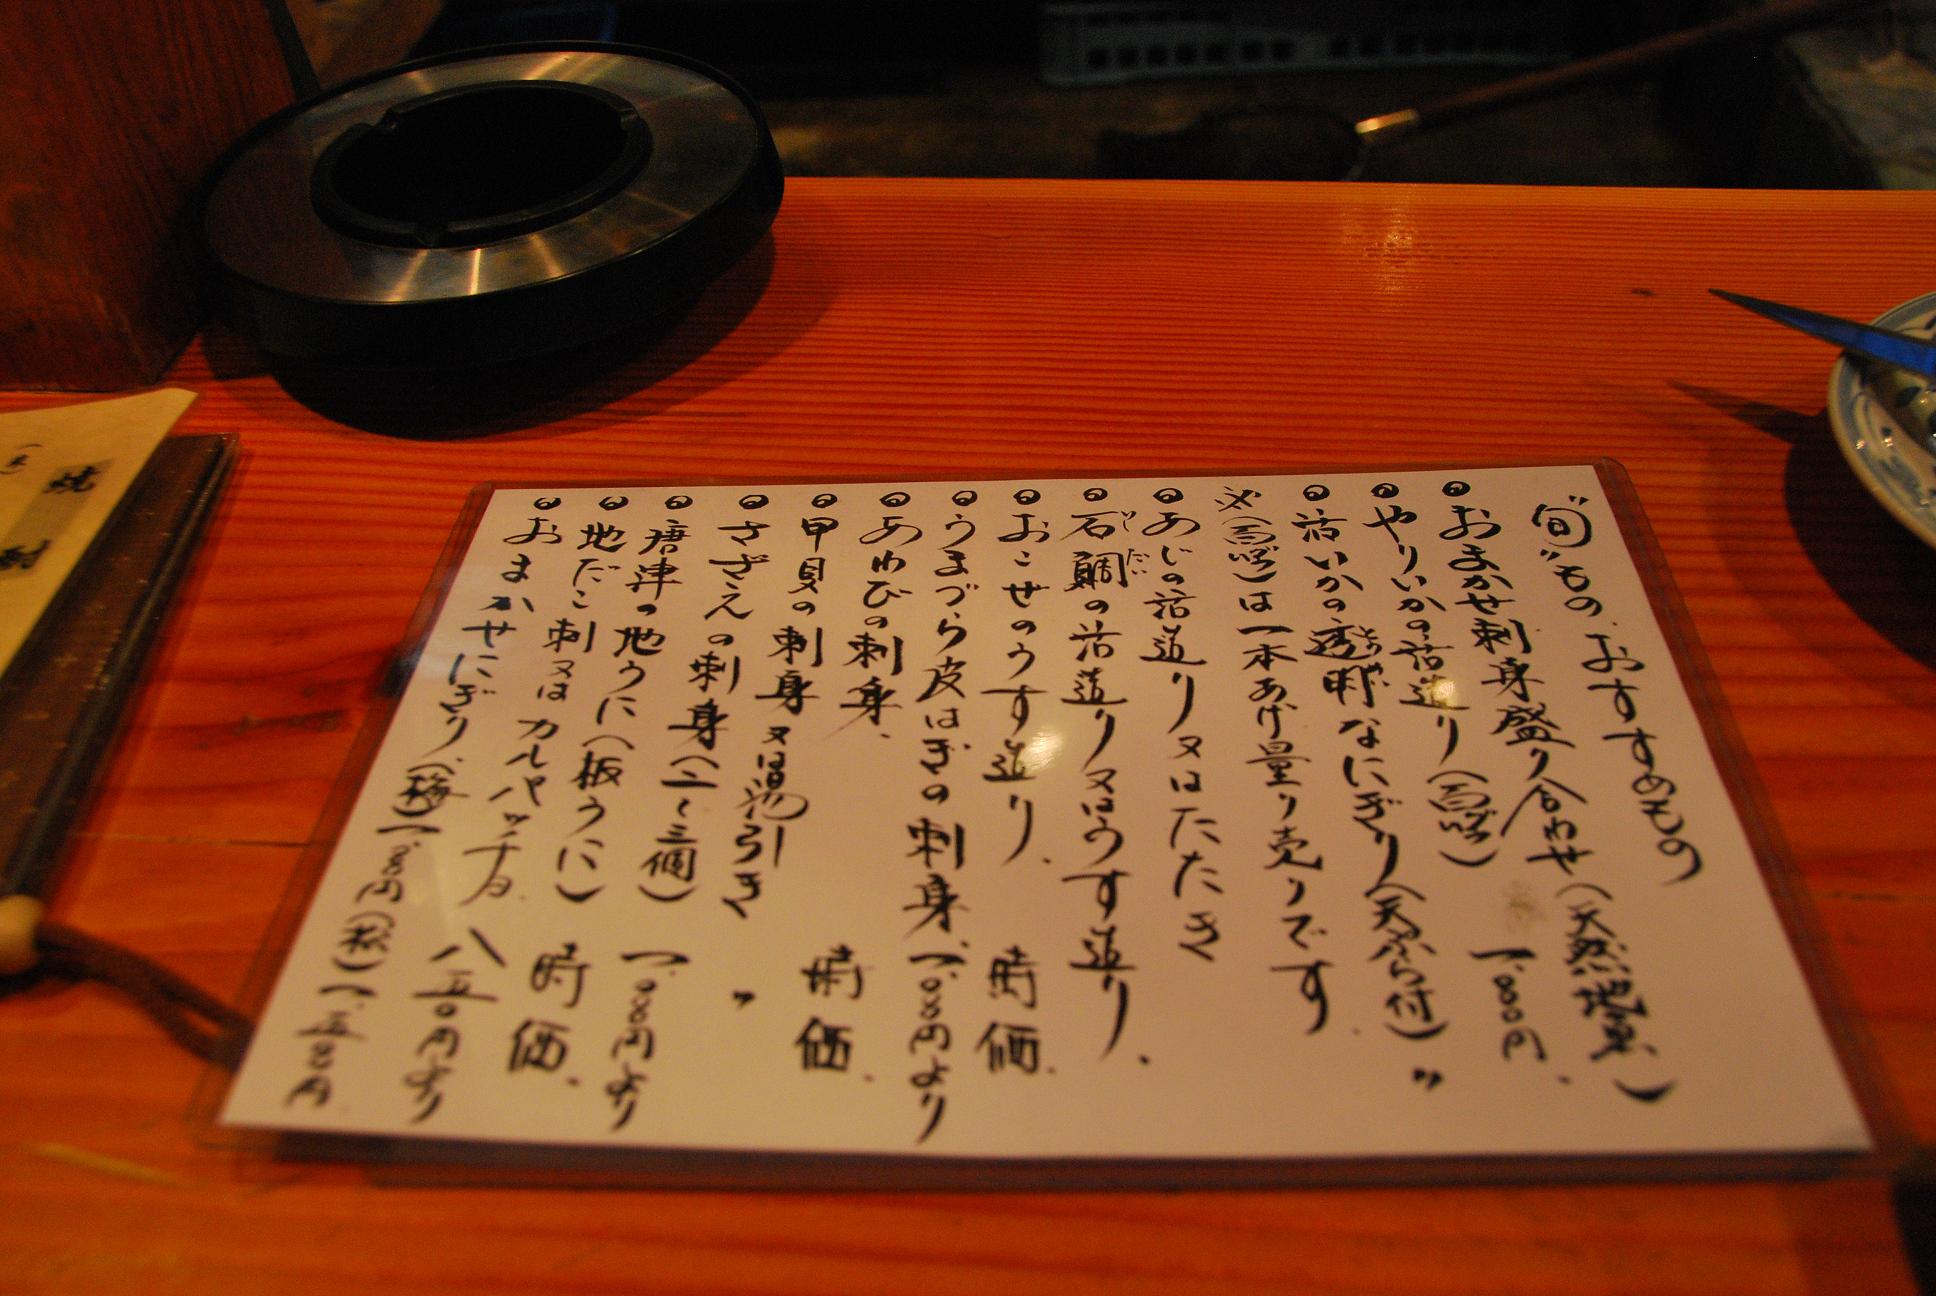 "旬"もの、おすすめもの
おまかせ刺身盛り合わせ(天然地魚)
一、八〇〇円
やりいかの活造り(百グラム)
活いかの透明なにぎり(天ぷら付) 〃
とうめい
※(百グラム)は一本あげ量り売りです
あじの活造り又はたたき
石鯛の活造り又はうす造り
いしだい
おこぜのうす造り 時価
うまづら皮はぎの刺身 一、〇〇〇円より
あわびの刺身
甲貝の刺身又は湯引き 時価
さざえの刺身(二〜三個) 〃
唐津の地うに(板うに) 一、〇〇〇円より
地だこ刺又はカルパッチョ 時価
八五〇円より
おまかせにぎり(梅)
円(松)
円
焼